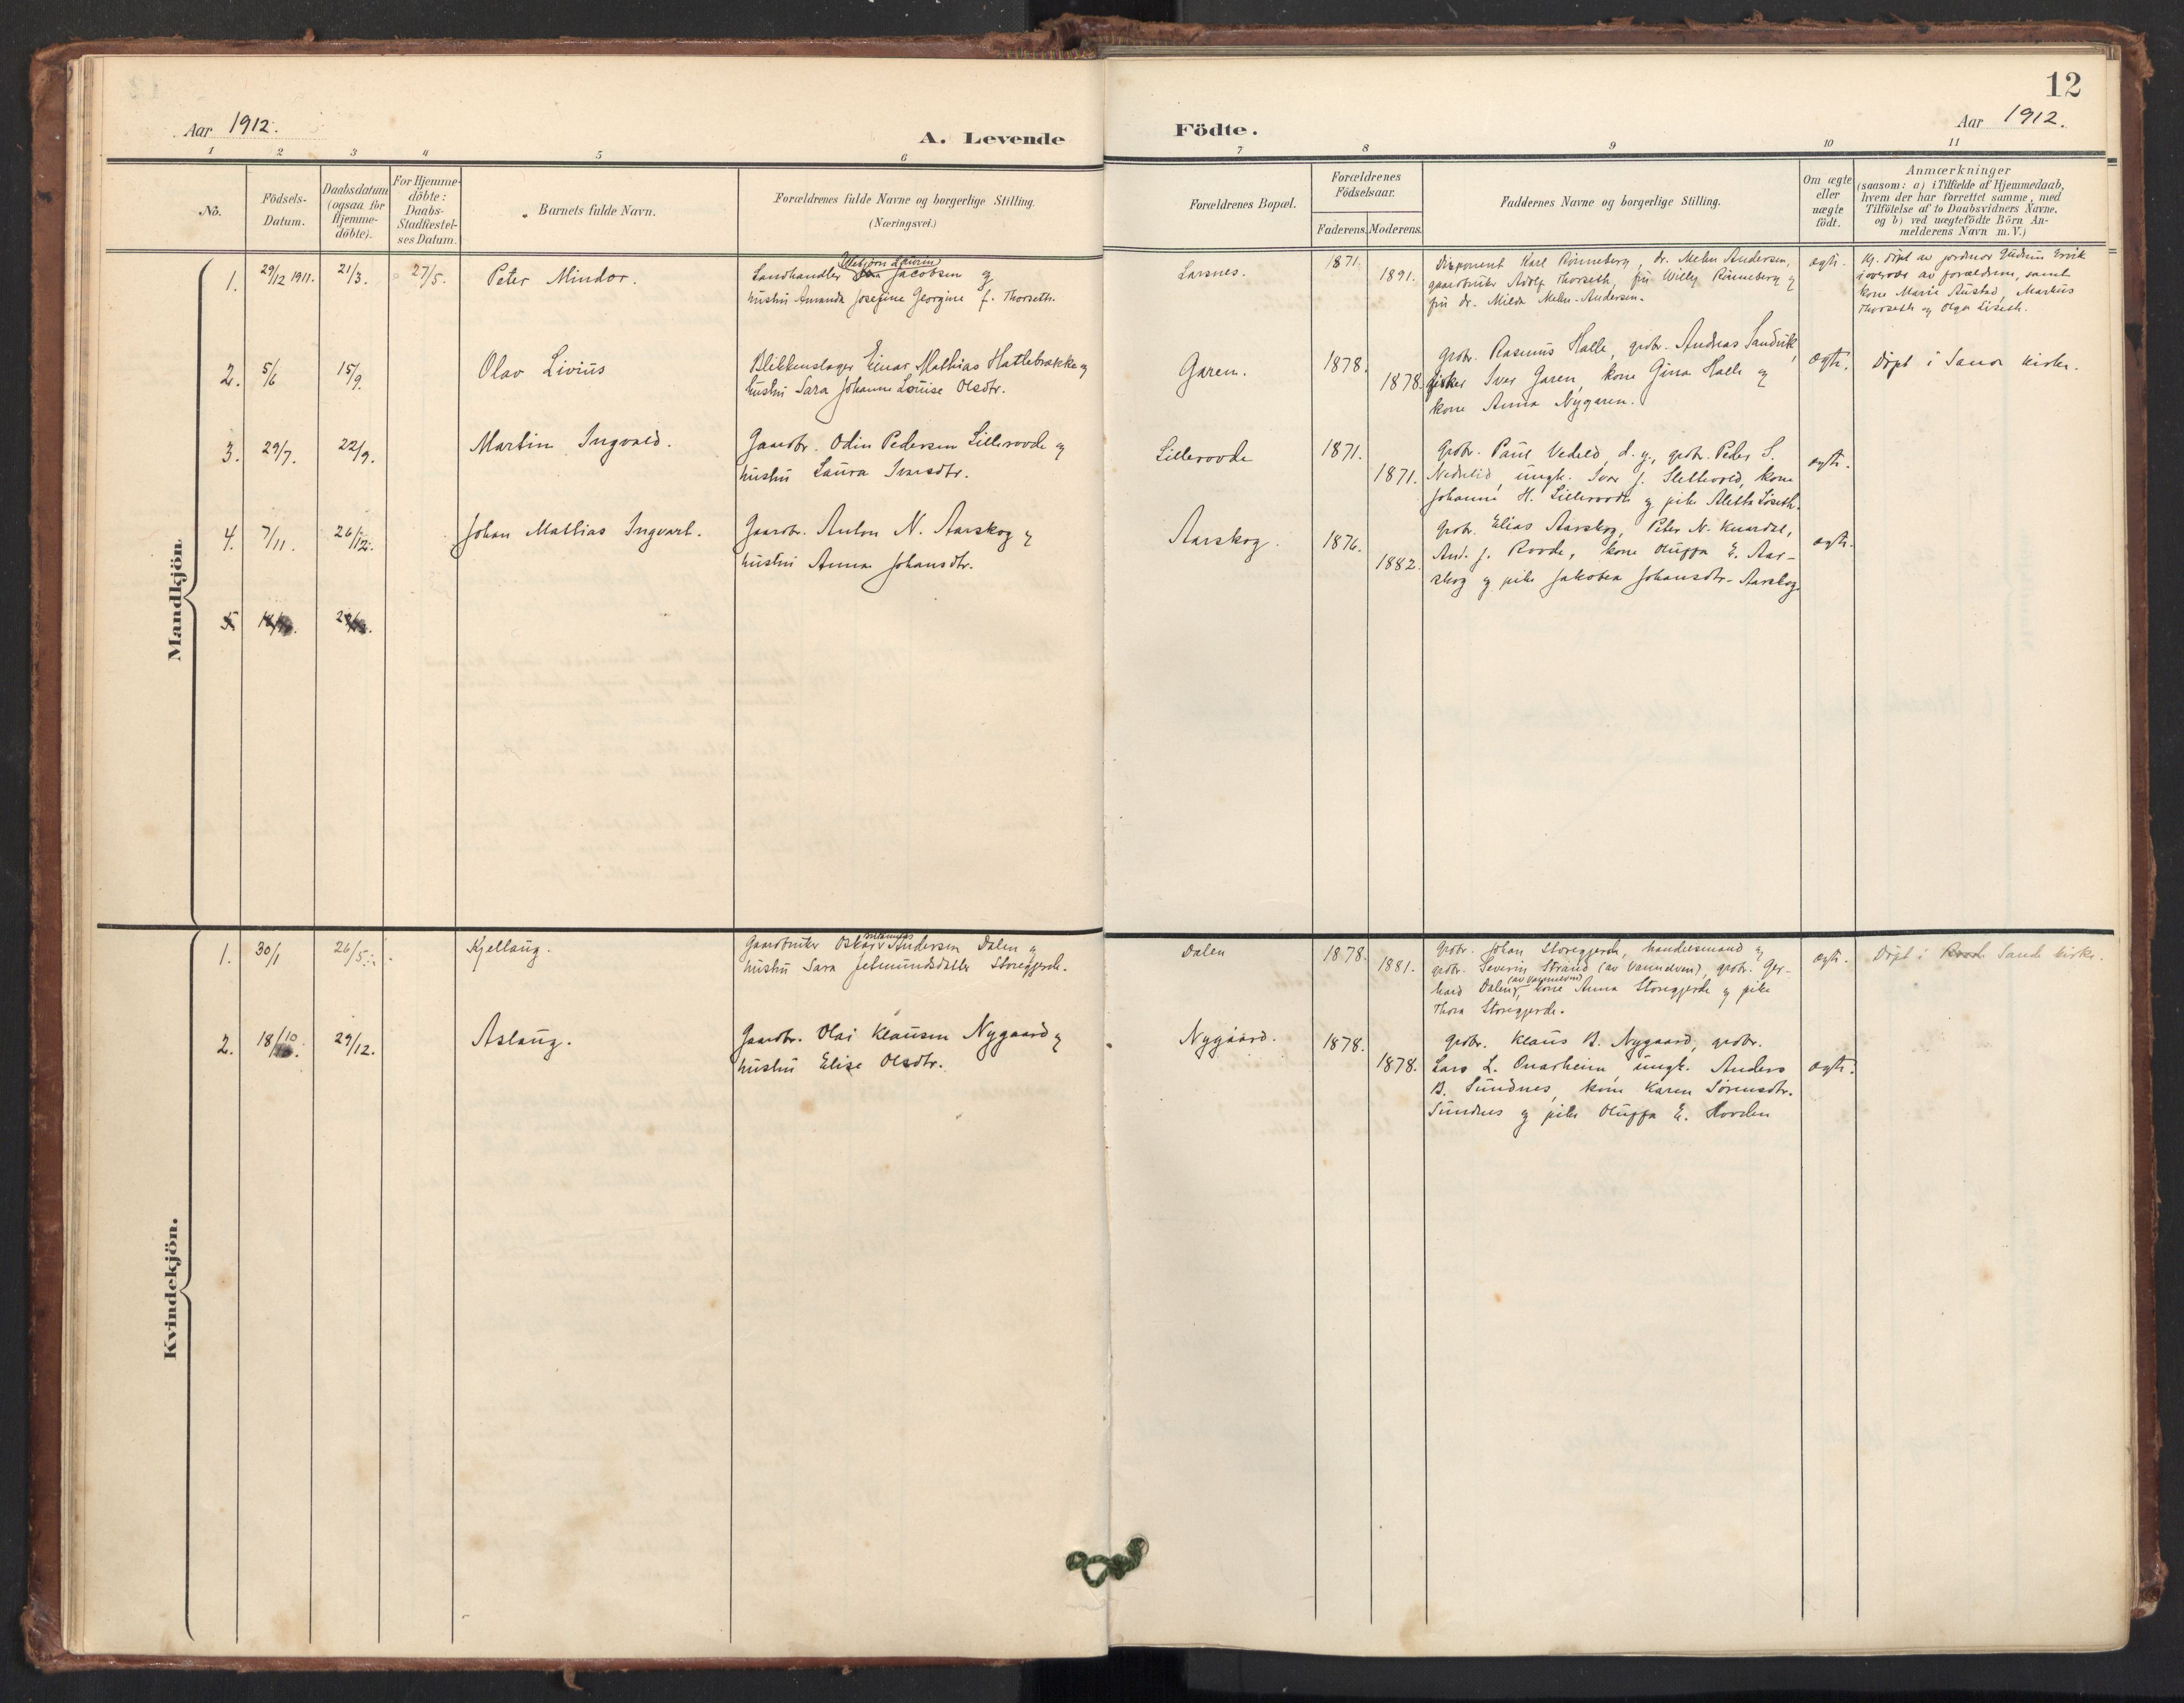 12
Aar 1912.
A. Levende
Födte.
Aar 1912.
1 2 3 4 5 6 7 8 9 10 11
No.
Födsels-
Datum.
Daabsdatum
(ogsaa for
Hjemme-
döbte).
For Hjemme-
döbte:
Daabs-
Stadfæstel-
ses Datum.
Barnets fulde Navn.
Forældrenes fulde Navne og borgerlige Stilling.
(Næringsvei.)
Forældrenes Bopæl.
Forældrenes
Födselsaar.
Faderens. Moderens.
Faddernes Navne og borgerlige Stilling.
Om ægte
eller
uægte
födt.
Anmærkninger
(saasom: a) i Tilfælde af Hjemmedaab,
hvem der har forrettet samme, med
Tilföielse af to Daabsvidners Navne,
og b) ved uægtefödte Börn An-
melderens Navn m. V.)
Mandkjön.
1. 29/12 1911. 21/3. 27/5. Peter Mindor.
Landhandler Jacobsen og
hustru Amanda Josefine Georgine f. Thorseth.
Larsnes. 1871. 1891.
Disponent Karl Rönneberg, dr. Mehn Andersen,
gaardbruker Adolf Thorseth, fru Willy Rönneberg og
fru dr. Milda Mehn-Andersen.
ægte.
Hj. döpt av jordmor Gudrun Ervik
i overvær av forældrene, samt
kone Marie Austad, Markus
Thorseth og Olga Liseth.
2. 5/6 15/9. Olav Livius
Blikkenslager Einar Mathias Hatlebrække og
hustru Sara Johanne Louise Olsdtr.
Garen. 1878. 1878.
Grdbr. Rasmus Halle, grdbr. Andreas Sandvik,
fisker Iver Garen, kone Gina Halle og
kone Anna Nygaren.
ægte. Döpt i Sande kirke.
3. 29/7. 22/9. Martin Ingvald.
Gaardbr. Odin Pedersen Lillerovde og
hustru Laura Iversdtr.
Lillerovde 1871. 1871.
Grdbr. Paul Vedeld d. y., grdbr. Peder S.
Nedrelid, ungk. Iver J. Sletvold, kone
Johanne H. Lillerovde og pike Aletta Liseth.
ægte.
4. 7/11. 26/12. Johan Mathias Ingvart.
Gaardbr. Anton N. Aarskog og
hustru Anna Johansdtr.
Aarskog. 1876. 1882.
Grdbr. Elias Aarskog, Peter N. Knardal,
And. J. Rovde, kone Oluffa E. Aar-
skog og pike Jakobea Johansdtr. Aarskog.
ægte.
5.
Kvindekjön.
1. 30/1 26/5. Kjellaug.
Gaardbruker Oskar Andersen Dalen og
hustru Sara Jetmundsdatter Storegjerde.
Dalen 1878. 1881.
Grdbr. Johan Storegjerde, handelsmand og
grdbr. Severin Strand (av Vannelven), grdbr. Ger-
hard Dalen (av Vannelven), kone Anna Storegjerde og pike
Thora Storegjerde.
ægte. Döpt i Sande kirke.
2. 18/10 29/12. Aslaug.
Gaardbr. Olai Klausen Nygaard og
hustru Elise Olsdtr.
Nygaard. 1878. 1878.
Grdbr. Klaus B. Nygaard, grdbr.
Lars L. Ouarheim, ungk. Anders
B. Sundnes, kone Karen Sörensdtr.
Sundnes og pike Oluffa E. Hovden
ægte.